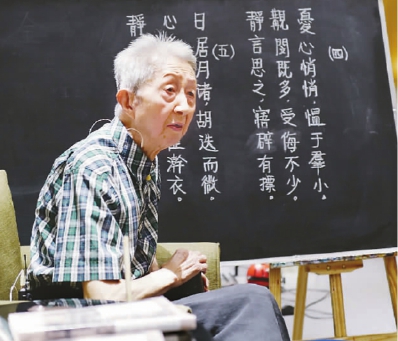 (四)
憂心悄悄，慍于羣小。
覯閔既多，受侮不少。
靜言思之，寤辟有摽。
(五)
日居月諸，胡迭而微。
心 澣衣。
靜